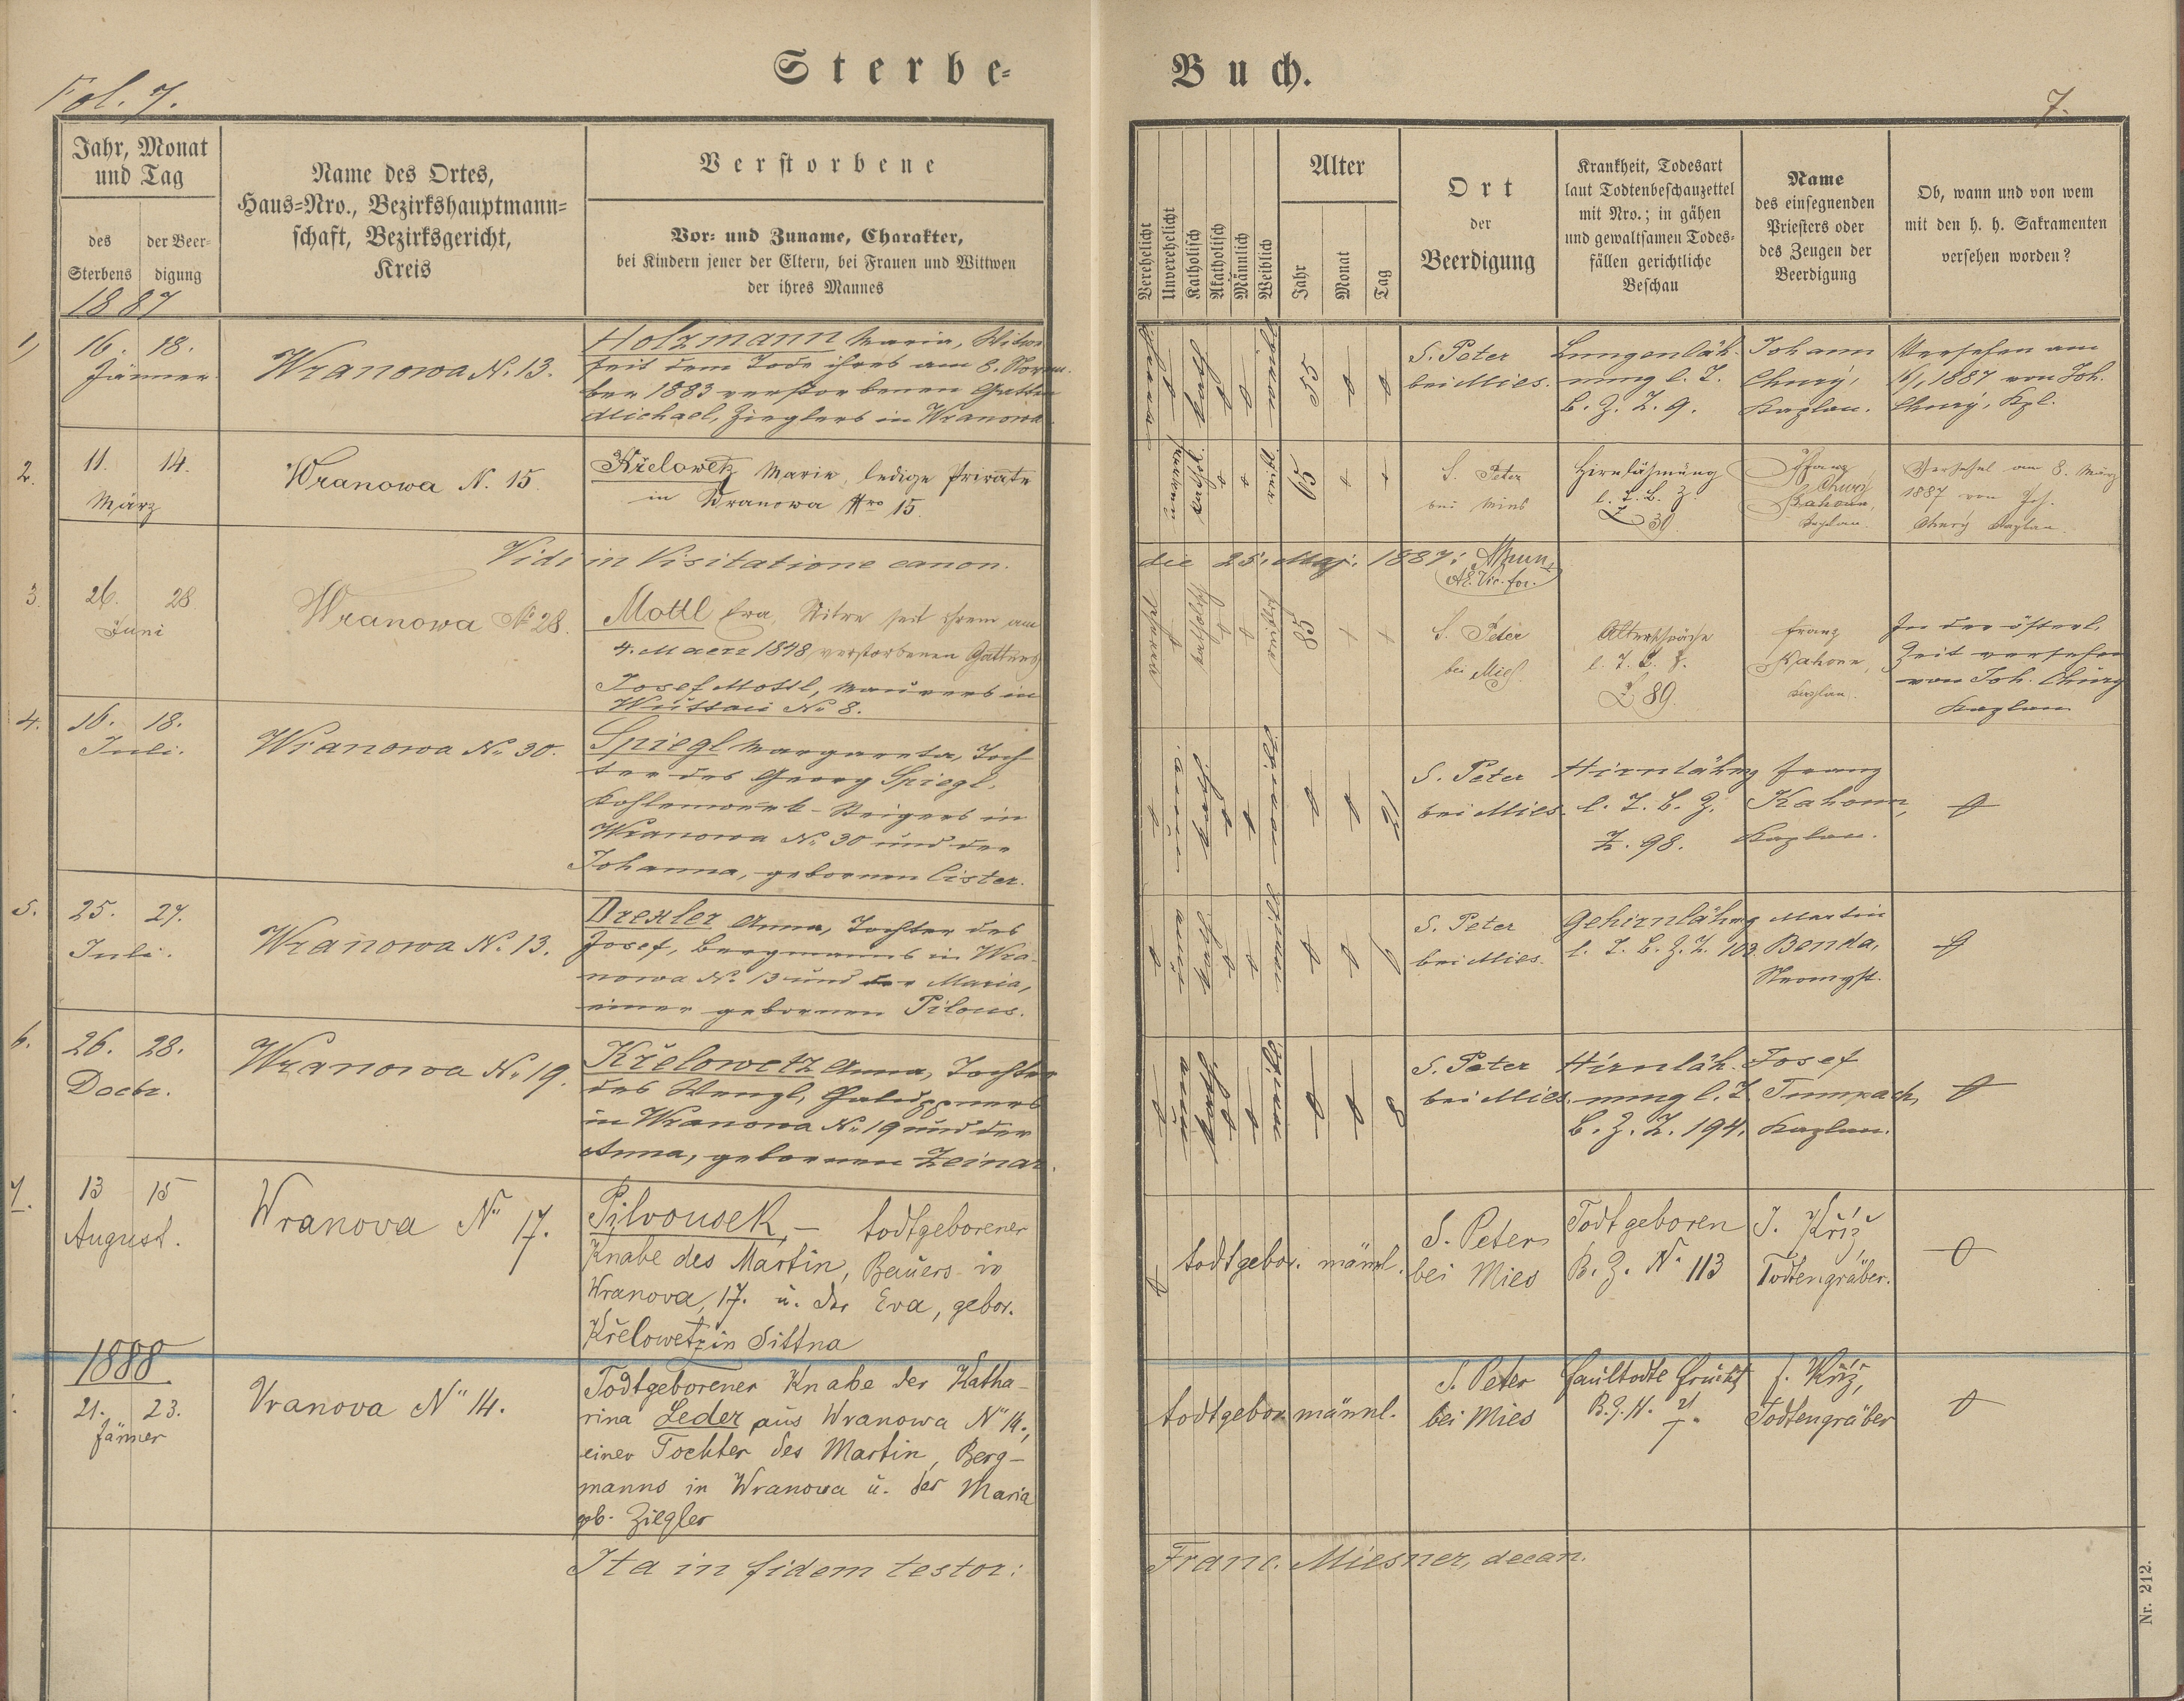 Sterbe-
Buch.
Fol. 7.
7.
Jahr, Monat
und Tag
des
Sterbens
der Beer-
digung
1887
Name des Ortes,
Haus-Nro., Bezirkshauptmann-
schaft, Bezirksgericht,
Kreis
Verstorbene
Vor- und Zuname, Charakter,
bei Kindern jener der Eltern, bei Frauen und Wittwen
der ihres Mannes
Verehelicht
Unverehelicht
Katholisch
Akatholisch
Männlich
Weiblich
Alter
Jahr
Monat
Tag
Ort
der
Beerdigung
Krankheit, Todesart
laut Todtenbeschauzettel
mit Nro.; in gähen
und gewaltsamen Todes-
fällen gerichtliche
Beschau
Name
des einsegnenden
Priesters oder
des Zeugen der
Beerdigung
Ob, wann und von wem
mit den h. h. Sakramenten
versehen worden?
1)
16. 18.
Jänner
Wranowa N. 13.
Holzmann Maria, Witwe
seit dem Tode ihres am 8. Novem-
ber 1883 verstorbenen Gatten
Michael, Zieglers in Wranowa
kath
55
S. Peter
bei Mies.
Lungenläh-
mung l. T.
B. Z. Z. 9.
Johann
Chury,
Kaplan.
Versehen am
16/1 1887 von Joh.
Chury, Kpl.
2.
11. 14.
März
Wranowa N. 15
Křelowetz Marie, ledige Private
in Wranowa Nro 15.
kathol.
65
S. Peter
bei Mies
Hirnlähmung
l. T. B. Z.
Z 30.
Franz
Chury
Kahoun,
Kaplan.
1887 von Joh.
Chury Kaplan.
Vidi in Visitatione canon.
die 25. Maj. 1887:
3.
26. 28.
Juni
Wranowa No 28.
Mottl Eva, Witwe seit ihrem am
4. Maerz 1848 verstorbenen Gatten
Josef Mottl, Maurers in
Wuttau No 8.
katholisch
85
S. Peter
bei Mies.
Altersschwäche
l. T. B. Z.
Z 89.
Franz
Kahoun,
Kaplan.
In der österl.
Zeit versehen
von Joh. Chury
Kaplan
4.
16. 18.
Juli.
Wranowa No 30.
Spiegl Margareta, Toch
ter des Georg Spiegl,
Kohlenwerk-Steigers in
Wranowa No 30 und der
Johanna, gebornen Cister.
kath
21
S. Peter
bei Mies.
Hirnlähmg
l. T. B. Z.
Z. 98.
Franz
Kahoun,
Kaplan.
5.
25. 27.
Juli.
Wranowa No. 13.
Drexler Anna, Tochter des
Josef, Bergmanns in Wra-
nowa No 13 und der Maria,
einer gebornen Pilous.
kath
6
S. Peter
bei Mies.
Gehirnlähmg
l. T. B. Z. Z. 103.
Martin
Benda,
6.
26. 28.
Decbr.
Wranowa No 19.
Křelowetz Anna, Tochter
des Wenzl, Chaluppners
in Wranowa No 19 und der
Anna, gebornen Zeinar.
kath
8
S. Peter
bei Mies.
Hirnläh-
mung l. T.
B. Z. Z. 194.
Josef
Tumpach,
Kaplan.
7.
13 15
August.
Wranova No 17.
Pilvousek, – todtgeborener
Knabe des Martin, Bauers in
Wranova, 17. u. der Eva, gebor.
Křelowetz in Sittna
todtgebor. männl.
S. Peter
bei Mies
Todtgeboren
B. Z. No 113
J. Kříž,
Todtengräber.
1888
21. 23.
Jänner
Vranova No 14.
Todtgeborener Knabe der Katha-
rina Leder aus Wranowa No 14,
einer Tochter des Martin, Berg-
manns in Wranowa u. der Maria
gb. Ziegler
todtgebor. männl.
S. Peter
bei Mies
faultodte Frucht
J. Kříž,
Todtengräber
Ita in fidem testor:
Franc. Miesner, decan.
Nr. 212.